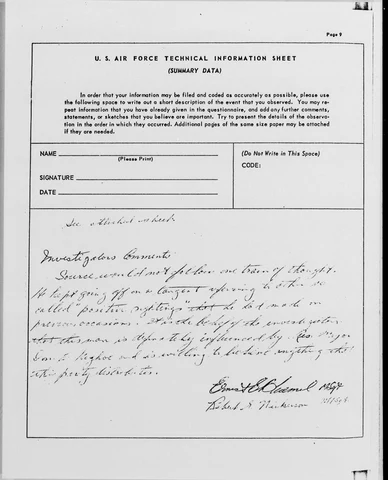 Page 9
U. S. AIR FORCE TECHNICAL INFORMATION SHEET
(SUMMARY DATA)
In order that your information may be filed and coded as accurately as possible, please use
the following space to write out a short description of the event that you observed. You may re-
peat information that you have already given in the questionnaire, and add any further comments,
statements, or sketches that you believe are important. Try to present the details of the observa-
tion in the order in which they occurred. Additional pages of the same size paper may be attached
if they are needed.
NAME
(Please Print)
SIGNATURE
DATE
(Do Not Write in This Space)
CODE:
See attached sheet
Investigators Comments
Source would not follow one train of thought.
He kept going off on a tangent referring to other so
called "positive sightings" that he had made on
previous occasions. It is the belief of the investigator
that this man is definitely influenced by Major
Don. E. Keyhoe and is willing to believe anything
this party distributes.
Robert S.